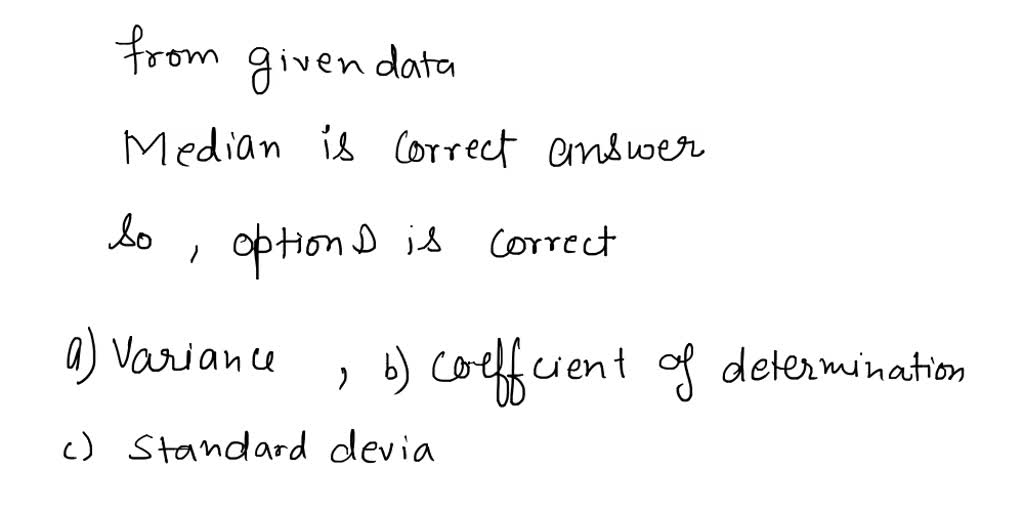 from given data
Median is correct answer
So, option D is correct
a) Variance, b) coeffcient of determination
c) Standard devia